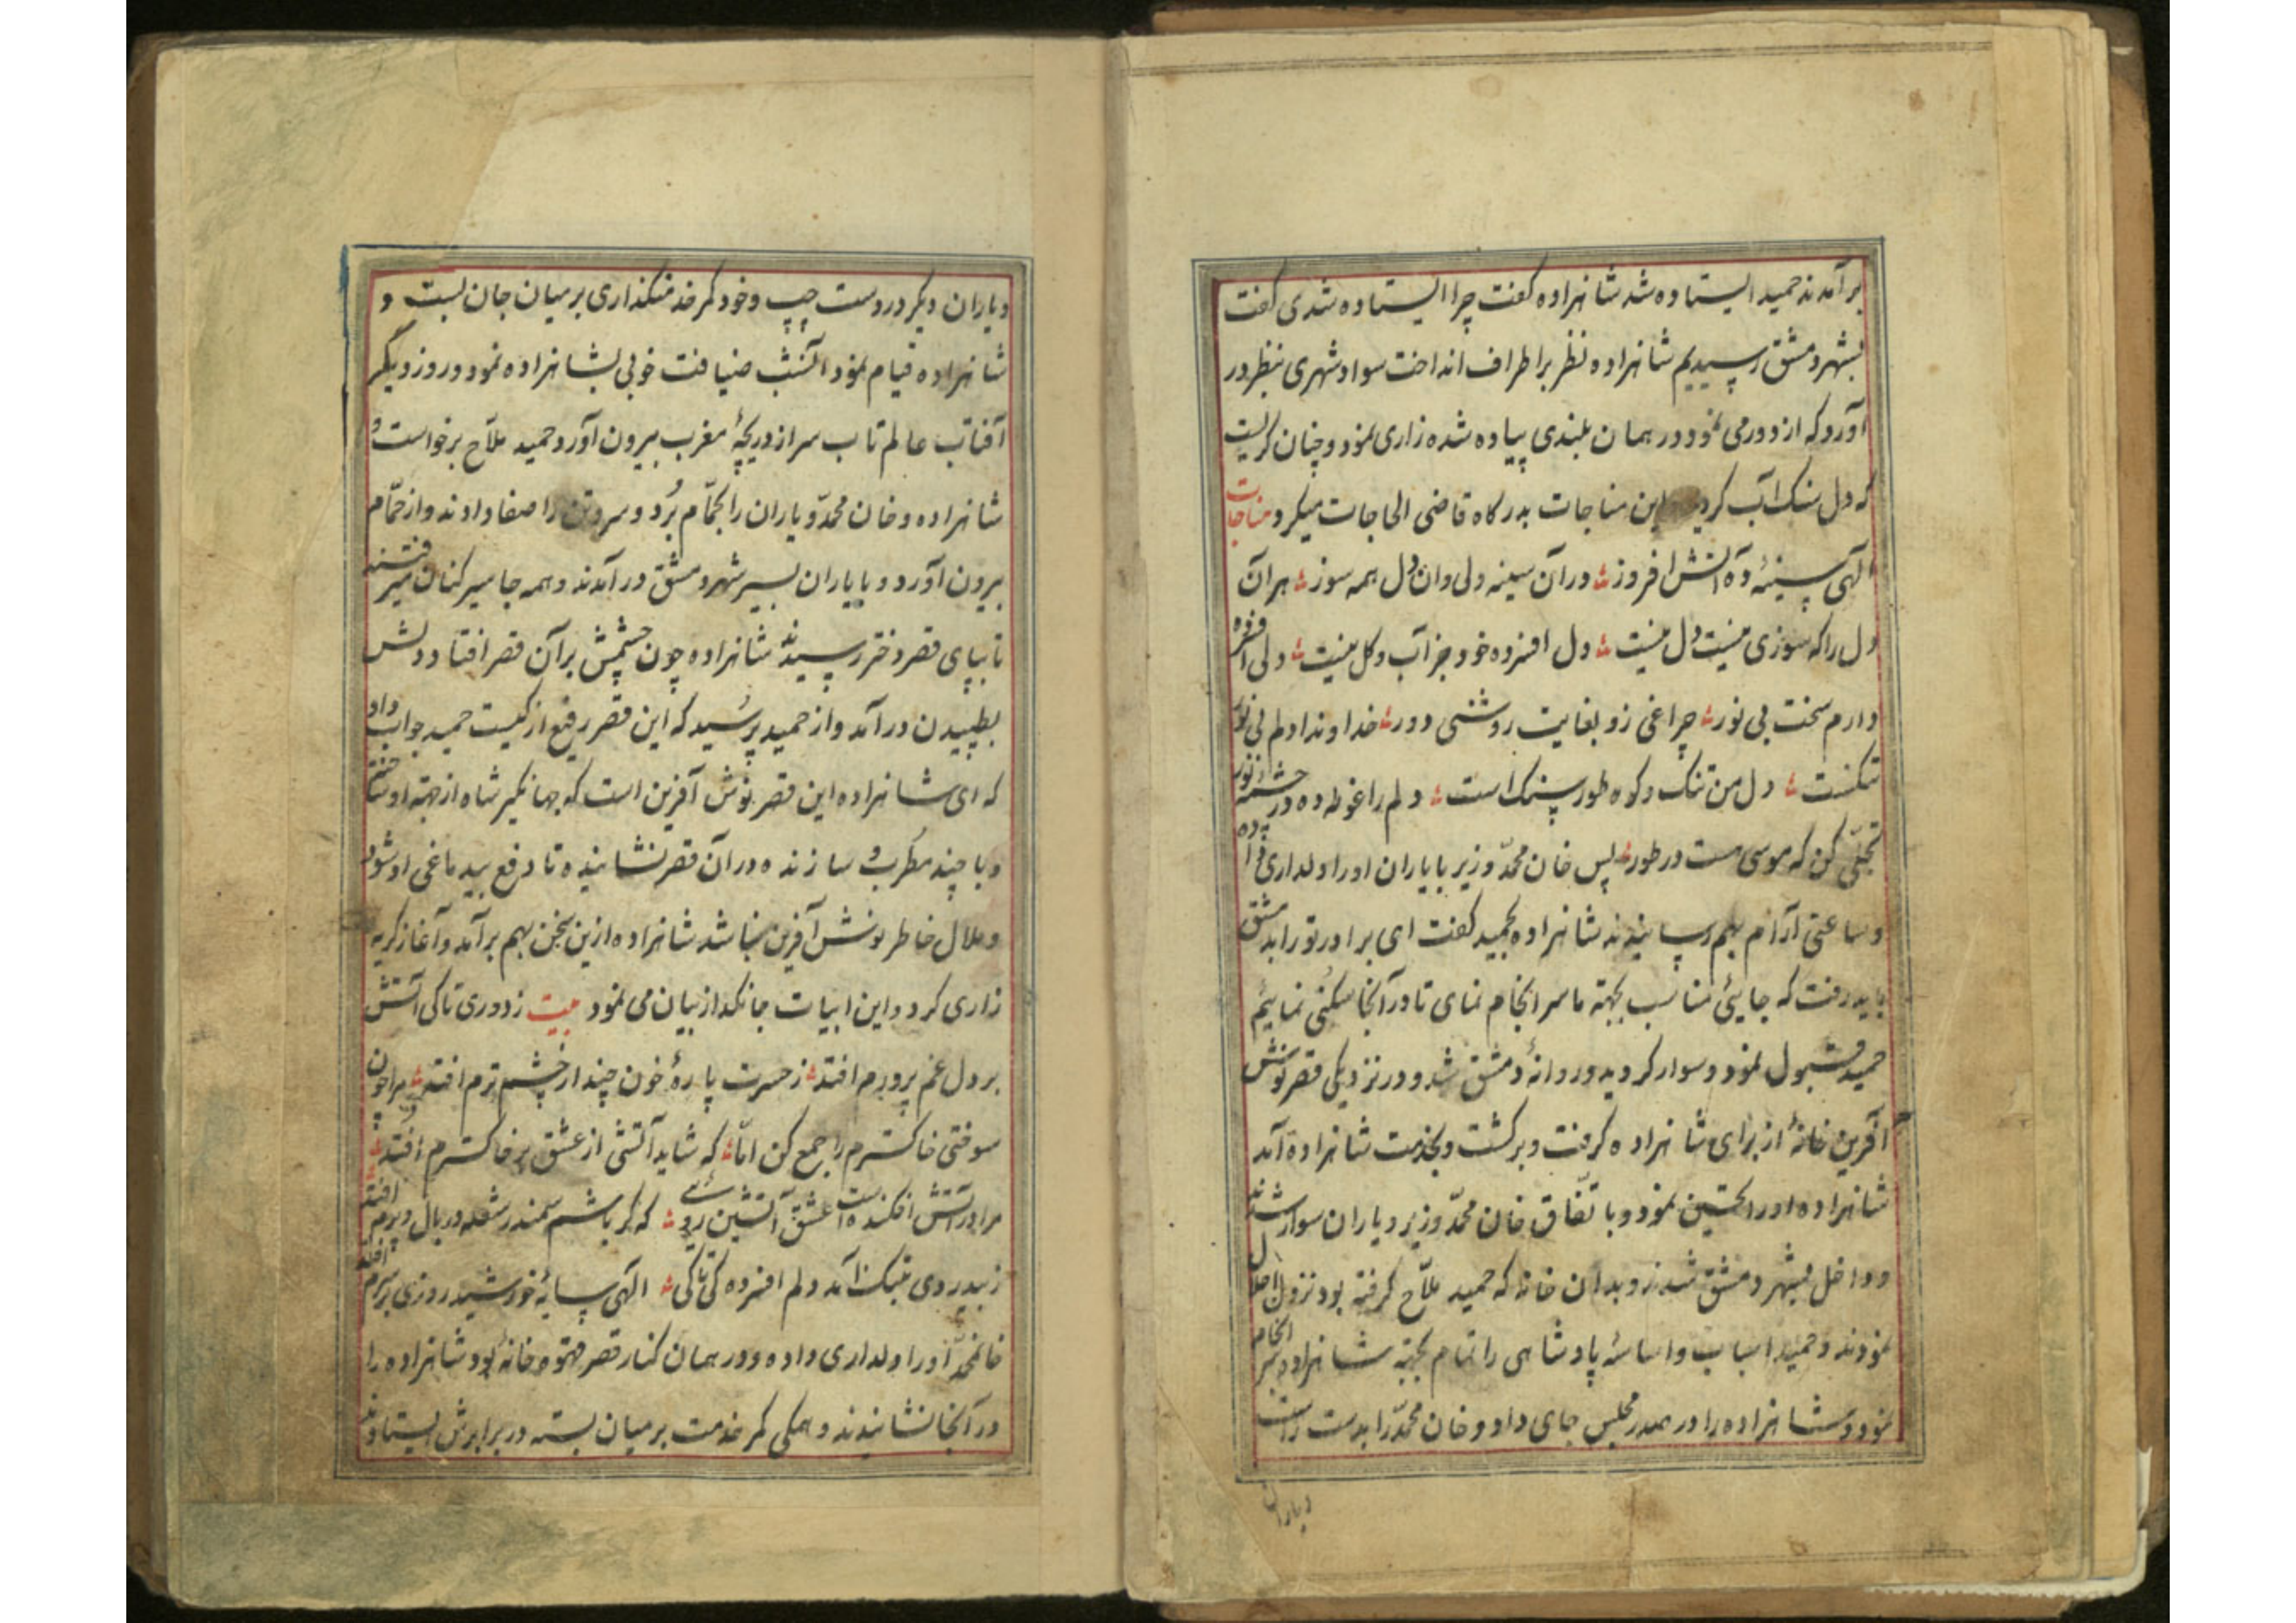 برآمدند حمید ایستاده شد شاهزاده کفت چرا ایستاده شدی کفت
بشهر دمشق رسیدیم شاهزاده نظر بر اطراف انداخت سواد شهری بنظر در
آورد که از دور می نمود در همان بلندی پیاده شده زاری نمود و چنان کریست
که دل سنک آب کردید این مناجات بدرکاه قاضی الحاجات میکرد مناجات
الهی سینهٔ ده آتش افروز در آن سینه دلی وان دل همه سوز هر آن
دل را که سوزی نیست دل نیست دل افسرده خود جز آب و کل نیست دلی افسرده
دارم سخت بی نور چراغی زو بغایت روشنی دور خداوندا دلم بی نور
تنکست دل من تنک و کوه طور سنک است دلم را غوطه ده در چشمه نور
تجلّی کن که موسی هست در طور پس خان محمّد وزیر با یاران او را دلداری داده
و ساعتی آرام بهم رسانیدند شاهزاده بحمید کفت ای برادر تو را بدمشق
باید رفت که جایئی مناسب بجهته ما سر انجام نمای تا در آنجا سکنی نمائیم
حمید قبول نمود و سوار کردید و روانهٔ دمشق شد و در نزدیکی قصر نوش
آفرین خانهٔ از برای شاهزاده کرفت و برکشت و بخدمت شاهزاده آمد
شاهزاده او را تحسین نمود و با تّفاق خان محمّد وزیر و یاران سوار شدند
و داخل بشهر دمشق شدند و بدان خانه که حمید ملاّح کرفته بود نزول اجلال
نمودند و حمید اسباب و اساسهٔ پادشاهی را تمام بجهته شاهزاده سر انجام
نمود و شاهزاده را در صدر مجلس جای داد و خان محمّد را بدست راست
و یاران
و یاران دیکر در دست چپ و خود کمر خدمتکذاری بر میان جان بست و
شاهزاده قیام نمود آنشب ضیافت خوبی بشاهزاده نمود و روز دیکر
آفتاب عالم تاب سر از دریچهٔ مغرب بیرون آورد حمید ملاّح برخواست و
شاهزاده و خان محمّد و یاران را بحمّام بُرد و سر و تن را صفا دادند و از حمّام
بیرون آورد و با یاران بسیر شهر دمشق در آمدند و همه جا سیر کنان میرفتند
تا بپای قصر دختر رسیدند شاهزاده چون چشمش بر آن قصر افتاد دلش
بطپیدن در آمد و از حمید پرسید که این قصر رفیع از کیست حمید جواب داد
که ای شاهزاده این قصر نوش آفرین است که جهانکیر شاه از جهته او ساخته
و با چند مطرب و سازنده در آن قصر نشانیده تا دفع بیدماغی او شود
و ملال خاطر نوش آفرین نباشد شاهزاده ازین سخن بهم برآمد و آغاز کریه
زاری کرد و این ابیات جانکداز بیان می نمود بیت ز دوری تا کی آتش
بر دل غم پرورم افتد ز حسرت پارهٔ خون چند از چشم ترم افتد مرا چون
سوختی خاکسترم را جمع کن امّا که شاید آتشی از عشق بر خاکسترم افتد
مرا در آتش افکنده است عشق آتشین روئی که کر باشم سمندر شعله در بال و پرم افتد
ز بیدردی بتنک آمد دلم افسرده کی تا کی الهی سایهٔ خورشید روزی بر سرم افتد
خانمحمّد او را دلداری داده و در همان کنار قصر قهوه خانهٔ بود شاهزاده را
در آنجا نشانیدند و همکی کمر خدمت بر میان بسته در برابرش ایستادند